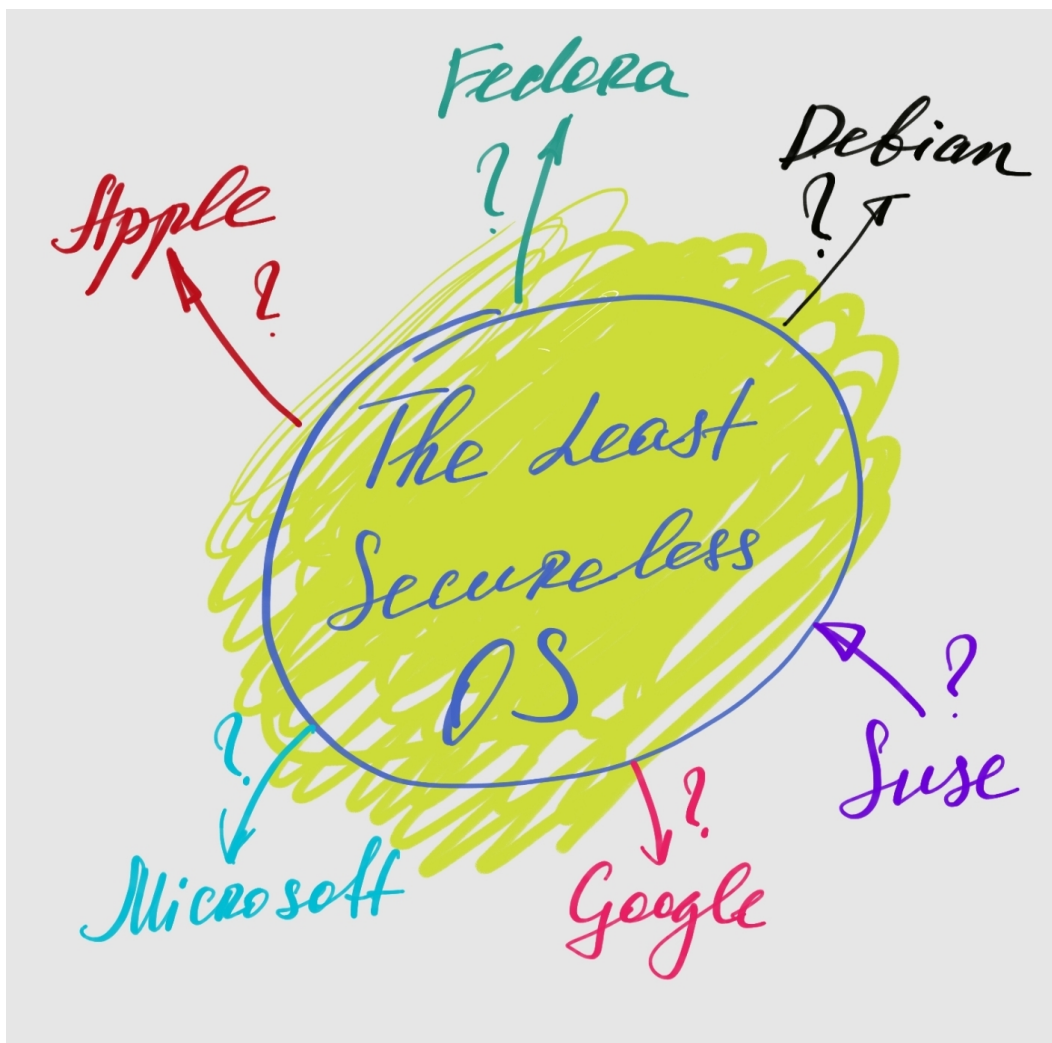 Fedora
?
Debian
?
Apple
?
The Least
Secureless
OS
?
Suse
?
Microsoft
?
Google